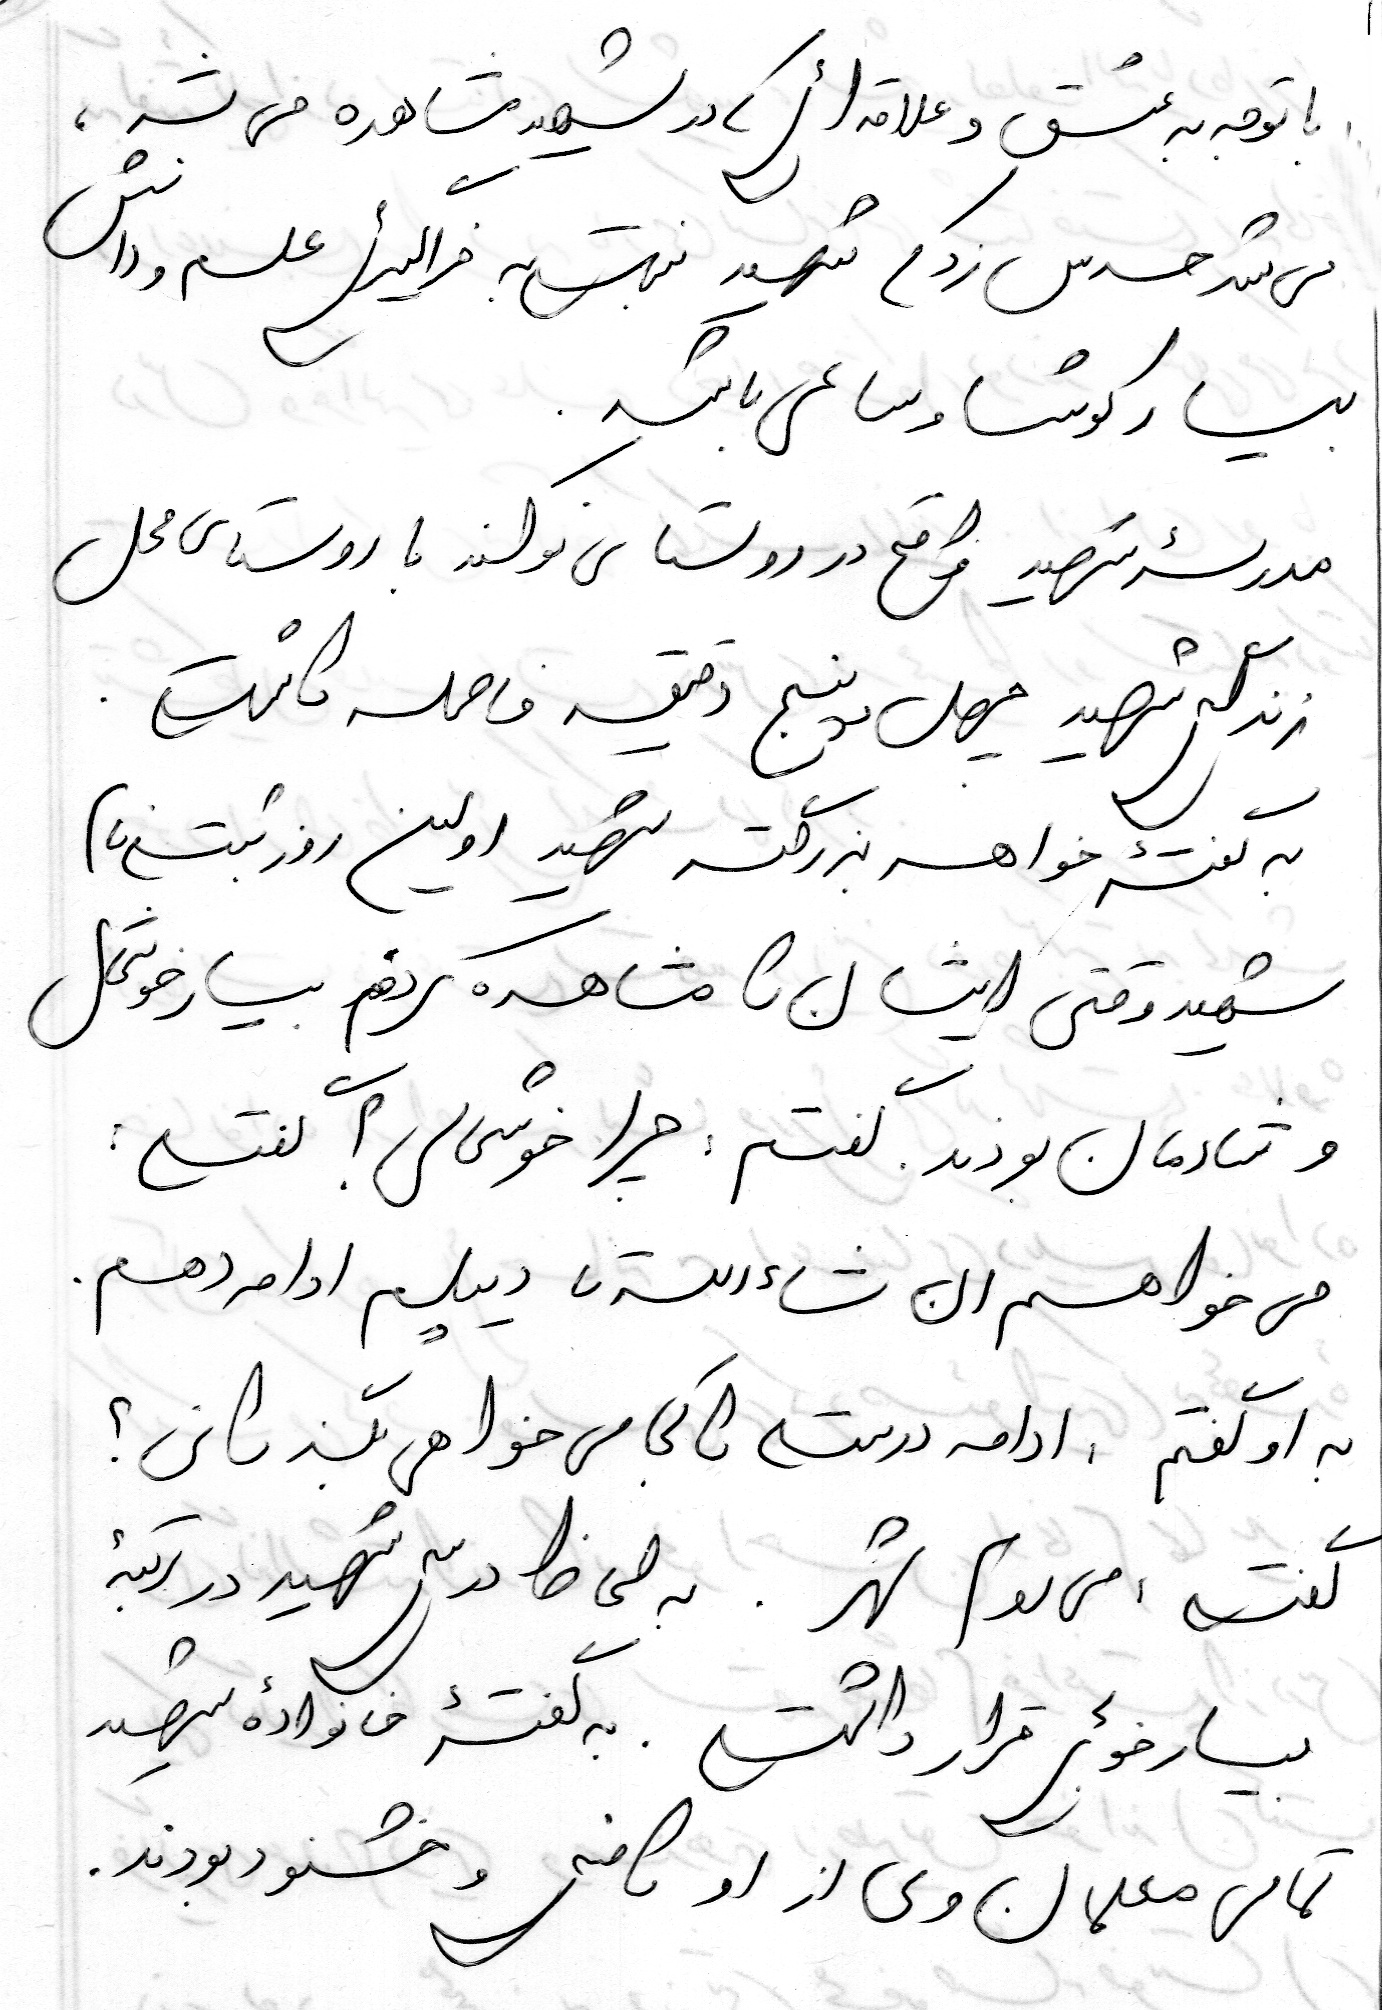 با توجه به عشق و علاقه ائی که در شهید مشاهده می شد،
می شد حدس زد که شهید نسبت به فراگیری علم و دانش
بسیار کوشا و ساعی باشد.
مدرسهٔ شهید واقع در روستای نوکند با روستای محل
زندگی شهید چهل و پنج دقیقه فاصله داشت.
به گفتهٔ خواهر بزرگتر شهید اولین روز ثبت نام
شهید وقتی ایشان را مشاهده کردم بسیار خوشحال
و شادمان بودند. گفتم: چرا خوشحالی؟ گفت:
می خواهم ان شاءالله تا دیپلم ادامه دهم.
به او گفتم: ادامه درست را کجا می خواهی بگذرانی؟
گفت: می روم شهر. به لحاظ درسی شهید در رتبهٔ
بسیار خوبی قرار داشت. به گفتهٔ خانوادهٔ شهید
تمامی معلمان وی از او راضی و خشنود بودند.